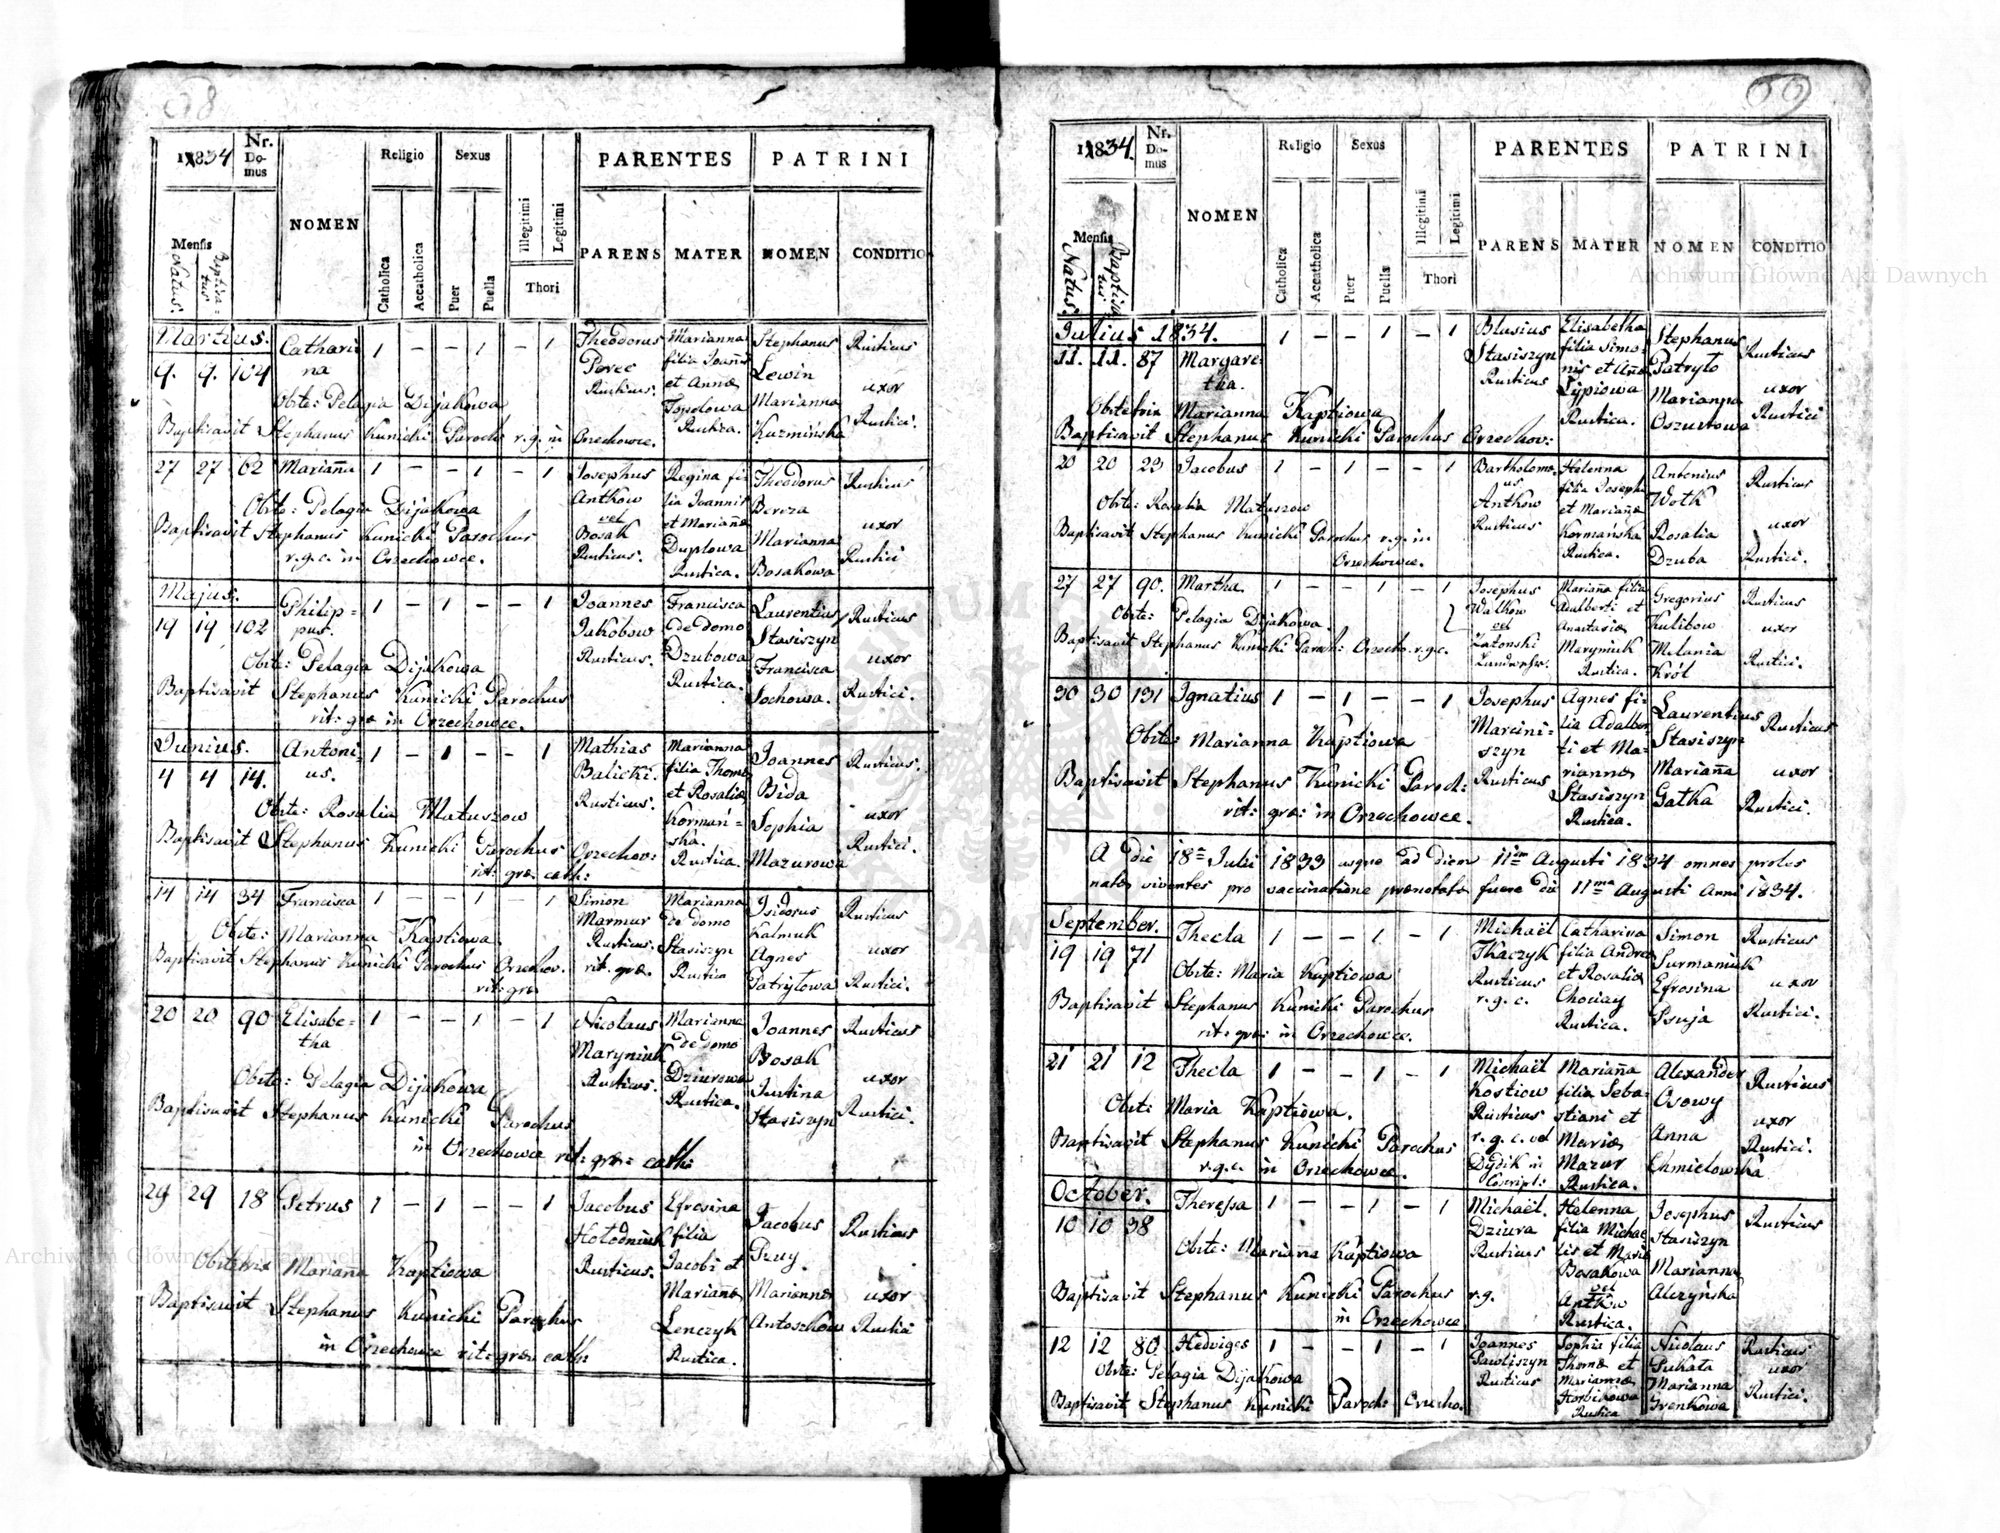 58
1834
Nr. Domus
NOMEN
Religio
Sexus
PARENTES
PATRINI
Mensis
Natus.
Baptisatus
Catholica
Accatholica
Puer
Puella
Illegitimi
Legitimi
Thori
PARENS
MATER
NOMEN
CONDITIO
Martius.
9. 9. 104 Catharina 1 – – 1 – 1
Theodorus Perec Rusticus.
Marianna filia Joannis et Annæ Topolowa Rustica.
Stephanus Lewin Rusticus
Marianna Kuzmińska uxor Rustici.
Obste: Pelagia Dijakowa
Baptisavit Stephanus Kunicki Paroch r. g. in Orzechowce.
27 27 62 Marianna 1 – – 1 – 1
Josephus Antków vel Bosak Rusticus.
Regina filia Joannis et Mariannæ Duplowa Rustica.
Theodorus Bereza Rusticus
Marianna Bosakowa uxor Rustici
Obste: Pelagia Dijakowa
Baptisavit Stephanus Kunicki Parochus
r. g. c. in Orzechowce.
Majus.
19 19 102 Philippus. 1 – 1 – – 1
Joannes Jakóbow Rusticus.
Francisca de domo Dzubowa Rustica.
Laurentius Stasiszyn Rusticus
Francisca Sochowa. uxor Rustici.
Obste: Pelagia Dijakowa
Baptisavit Stephanus Kunicki Parochus
rit: græ in Orzechowce.
Junius.
4 4 14. Antonius. 1 – 1 – – 1
Mathias Balicki. Rusticus.
Marianna filia Thomæ et Rosaliæ Kormańska. Rustica.
Joannes Bida Rusticus.
Sophia Mazurowa uxor Rustici.
Obste: Rosalia Matuszow
Baptisavit Stephanus Kunicki Parochus Orzechov:
rit: græ: cath:
14 14 34 Francisca 1 – – 1 – 1
Simon Marmur Rusticus. rit. græ.
Marianna de domo Stasiszyn Rustica
Isidorus Kalmuk Rusticus
Agnes Patrytowa uxor Rustici.
Obste: Marianna Kaptiowa.
Baptisavit Stephanus Kunicki Parochus Orzechov.
rit: græ
20 20 90 Elisabetha 1 – – 1 – 1
Nicolaus Maryniuk Rusticus.
Marianna de domo Dziurowa Rustica.
Joannes Bosak Rusticus
Justina Stasiszyn uxor Rustici.
Obste: Pelagia Dijakowa
Baptisavit Stephanus Kunicki Parochus
in Orzechowce rit: græ: cath:
29 29 18 Petrus 1 – 1 – – 1
Jacobus Hołodniuk Rusticus.
Efrosina filia Jacobi et Mariannæ Lenczyk Rustica.
Jacobus Rusticus
Marianna Antoszkow uxor Rustici
Obstetrix Marianna Kaptiowa
Baptisavit Stephanus Kunicki Parochus
in Orzechowce rit: græ: cath
59
1834.
Nr. Domus
NOMEN
Religio
Sexus
PARENTES
PATRINI
Mensis
Natus
Baptisatus
Catholica
Accatholica
Puer
Puella
Illegitimi
Legitimi
Thori
PARENS
MATER
NOMEN
CONDITIO
Julius 1834.
11. 11. 87 Margaretha. 1 – – 1 – 1
Blasius Stasiszyn Rusticus
Elisabetha filia Simonis et Annæ Lypiowa Rustica.
Stephanus Patryto Rusticus
Marianna Oszustowa uxor Rustici
Obstetrix Marianna Kaptiowa
Baptisavit Stephanus Kunicki Parochus Orzechov:
20 20 23 Jacobus 1 – 1 – – 1
Bartholomæus Antków Rusticus
Helenna filia Josephi et Mariannæ Kormańska Rustica.
Antonius Wołk Rusticus
Rosalia Dzuba uxor Rustici.
Obste: Rosalia Matuszow
Baptisavit Stephanus Kunicki Parochus r. g. in
Orzechowce.
27 27 90. Martha. 1 – – 1 – 1
Josephus Walków vel Zatonski
Marianna filia Adalberti et Anastasiæ Maryniuk Rustica.
Gregorius Kulibow Rusticus
Melania Król uxor Rustici.
Obste: Pelagia Dijakowa.
Baptisavit Stephanus Kunicki Paroch: Orzecho. r. g. c.
30 30 131 Ignatius 1 – 1 – – 1
Josephus Marciniszyn Rusticus
Agnes filia Adalberti et Mariannæ Stasiszyn Rustica.
Laurentius Stasiszyn Rusticus
Marianna Gałka uxor Rustici.
Obste: Marianna Kaptiowa
Baptisavit Stephanus Kunicki Paroch:
rit: græ: in Orzechowce.
A die 18a Julii 1833 usque ad diem 11am Augusti 1834 omnes proles
natæ viventes pro vaccinatione prænotatæ fuere die 11ma Augusti Anni 1834.
September.
19 19 71 Thecla 1 – – 1 – 1
Michaël Tkaczyk Rusticus r. g. c.
Catharina filia Andreæ et Rosaliæ Rustica.
Simon Surmaniuk Rusticus
Efrosina Psuja uxor Rustici.
Obste: Maria Kaptiowa
Baptisavit Stephanus Kunicki Parochus
rit: græ: in Orzechowce.
21 21 12 Thecla 1 – – 1 – 1
Michaël Kostiow Rusticus r. g. c. vel Dydik in Conscript:
Marianna filia Sebastiani et Mariæ Mazur Rustica.
Alexander Osowy Rusticus
Anna Chmielowska uxor Rustici.
Obst: Maria Kaptiowa.
Baptisavit Stephanus Kunicki Parochus
r. g. c. in Orzechowce.
October.
10 10 38 Theressa 1 – – 1 – 1
Michaël. Dziura Rusticus r. g.
Helenna filia Michaelis et Mariæ Bosakowa vel Antków Rustica.
Josephus Stasiszyn Rusticus
Marianna Alczyńska
Obste: Marianna Kaptiowa
Baptisavit Stephanus Kunicki Parochus
in Orzechowce
12 12 80. Hedviges 1 – – 1 – 1
Joannes Pawliszyn Rusticus
Sophia filia Thomæ et Mariannæ Horbikowa Rustica
Nicolaus Pukała Rusticus
Marianna Hrenkowa uxor Rustici.
Obste: Pelagia Dijakowa
Baptisavit Stephanus Kunicki Paroch: Orzecho.
Archiwum Główne Akt Dawnych
Archiwum Główne Akt Dawnych